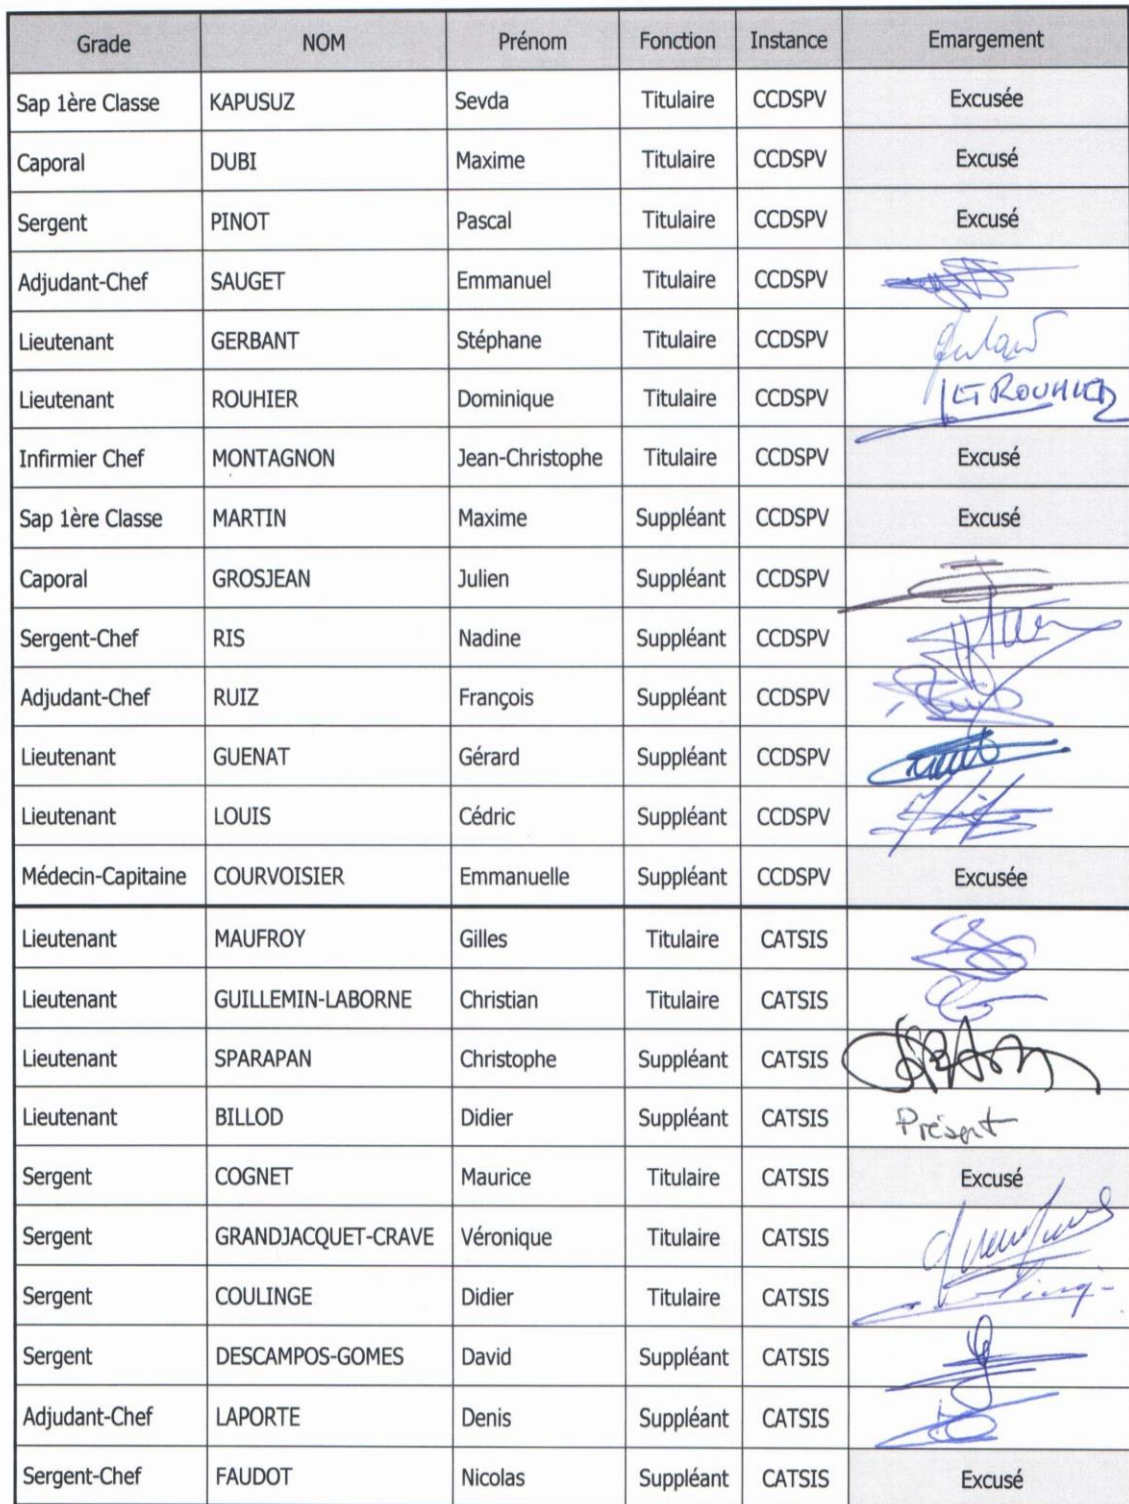 Grade NOM Prénom Fonction Instance Emargement
Sap 1ère Classe KAPUSUZ Sevda Titulaire CCDSPV Excusée
Caporal DUBI Maxime Titulaire CCDSPV Excusé
Sergent PINOT Pascal Titulaire CCDSPV Excusé
Adjudant-Chef SAUGET Emmanuel Titulaire CCDSPV
Lieutenant GERBANT Stéphane Titulaire CCDSPV
Lieutenant ROUHIER Dominique Titulaire CCDSPV LT ROUHIER
Infirmier Chef MONTAGNON Jean-Christophe Titulaire CCDSPV Excusé
Sap 1ère Classe MARTIN Maxime Suppléant CCDSPV Excusé
Caporal GROSJEAN Julien Suppléant CCDSPV
Sergent-Chef RIS Nadine Suppléant CCDSPV
Adjudant-Chef RUIZ François Suppléant CCDSPV
Lieutenant GUENAT Gérard Suppléant CCDSPV
Lieutenant LOUIS Cédric Suppléant CCDSPV
Médecin-Capitaine COURVOISIER Emmanuelle Suppléant CCDSPV Excusée
Lieutenant MAUFROY Gilles Titulaire CATSIS
Lieutenant GUILLEMIN-LABORNE Christian Titulaire CATSIS
Lieutenant SPARAPAN Christophe Suppléant CATSIS
Lieutenant BILLOD Didier Suppléant CATSIS Présent
Sergent COGNET Maurice Titulaire CATSIS Excusé
Sergent GRANDJACQUET-CRAVE Véronique Titulaire CATSIS
Sergent COULINGE Didier Titulaire CATSIS
Sergent DESCAMPOS-GOMES David Suppléant CATSIS
Adjudant-Chef LAPORTE Denis Suppléant CATSIS
Sergent-Chef FAUDOT Nicolas Suppléant CATSIS Excusé